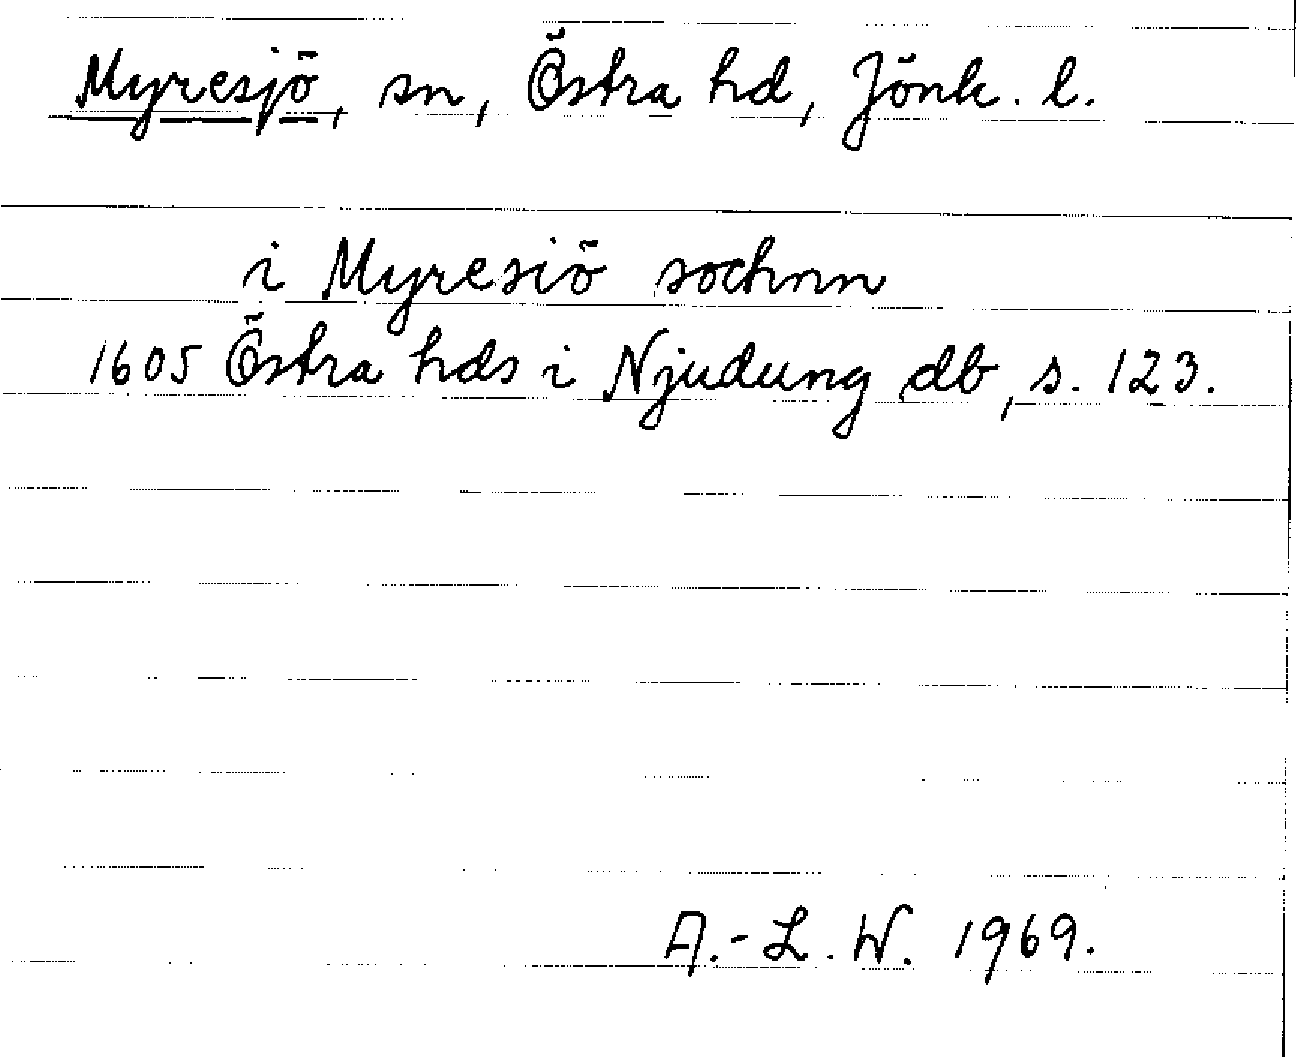 Myresjö, sn, Östra hd, Jönk. l.
i Myresiö sochnn
1605 Östra hds i Njudung db, s. 123.
A.-L. W. 1969.